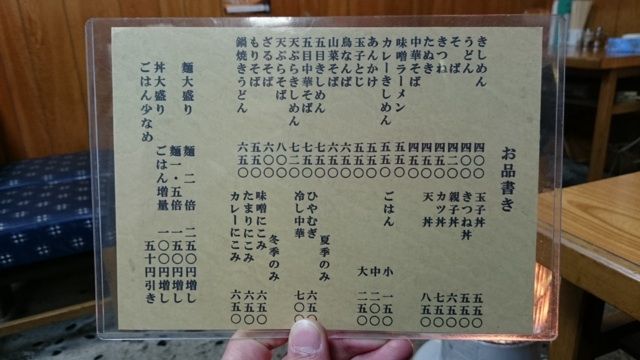 お品書き
きしめん 四〇〇
うどん 四〇〇
そば 四二〇
きつね 四五〇
たぬき 四五〇
中華そば 四五〇
味噌ラーメン 五五〇
カレーきしめん 五五〇
あんかけ 五五〇
玉子とじ 五五〇
鳥なんば 六五〇
山菜そば 六五〇
五目きしめん 七五〇
五目中華そば 七五〇
天ぷらきしめん 七二〇
天ぷらそば 八〇〇
ざるそば 五五〇
もりそば 五五〇
鍋焼きうどん 六五〇
玉子丼 五五〇
きつね丼 五五〇
親子丼 六五〇
カツ丼 七五〇
天丼 八五〇
ごはん 小 一五〇
中 二〇〇
大 二五〇
夏季のみ
ひやむぎ 六五〇
冷し中華 七〇〇
冬季のみ
味噌にこみ 六五〇
たまりにこみ 六五〇
カレーにこみ 六五〇
麺大盛り 麺二倍 二五〇円増し
麺一・五倍 一五〇円増し
丼大盛り ごはん増量 一〇〇円増し
ごはん少なめ 五十円引き